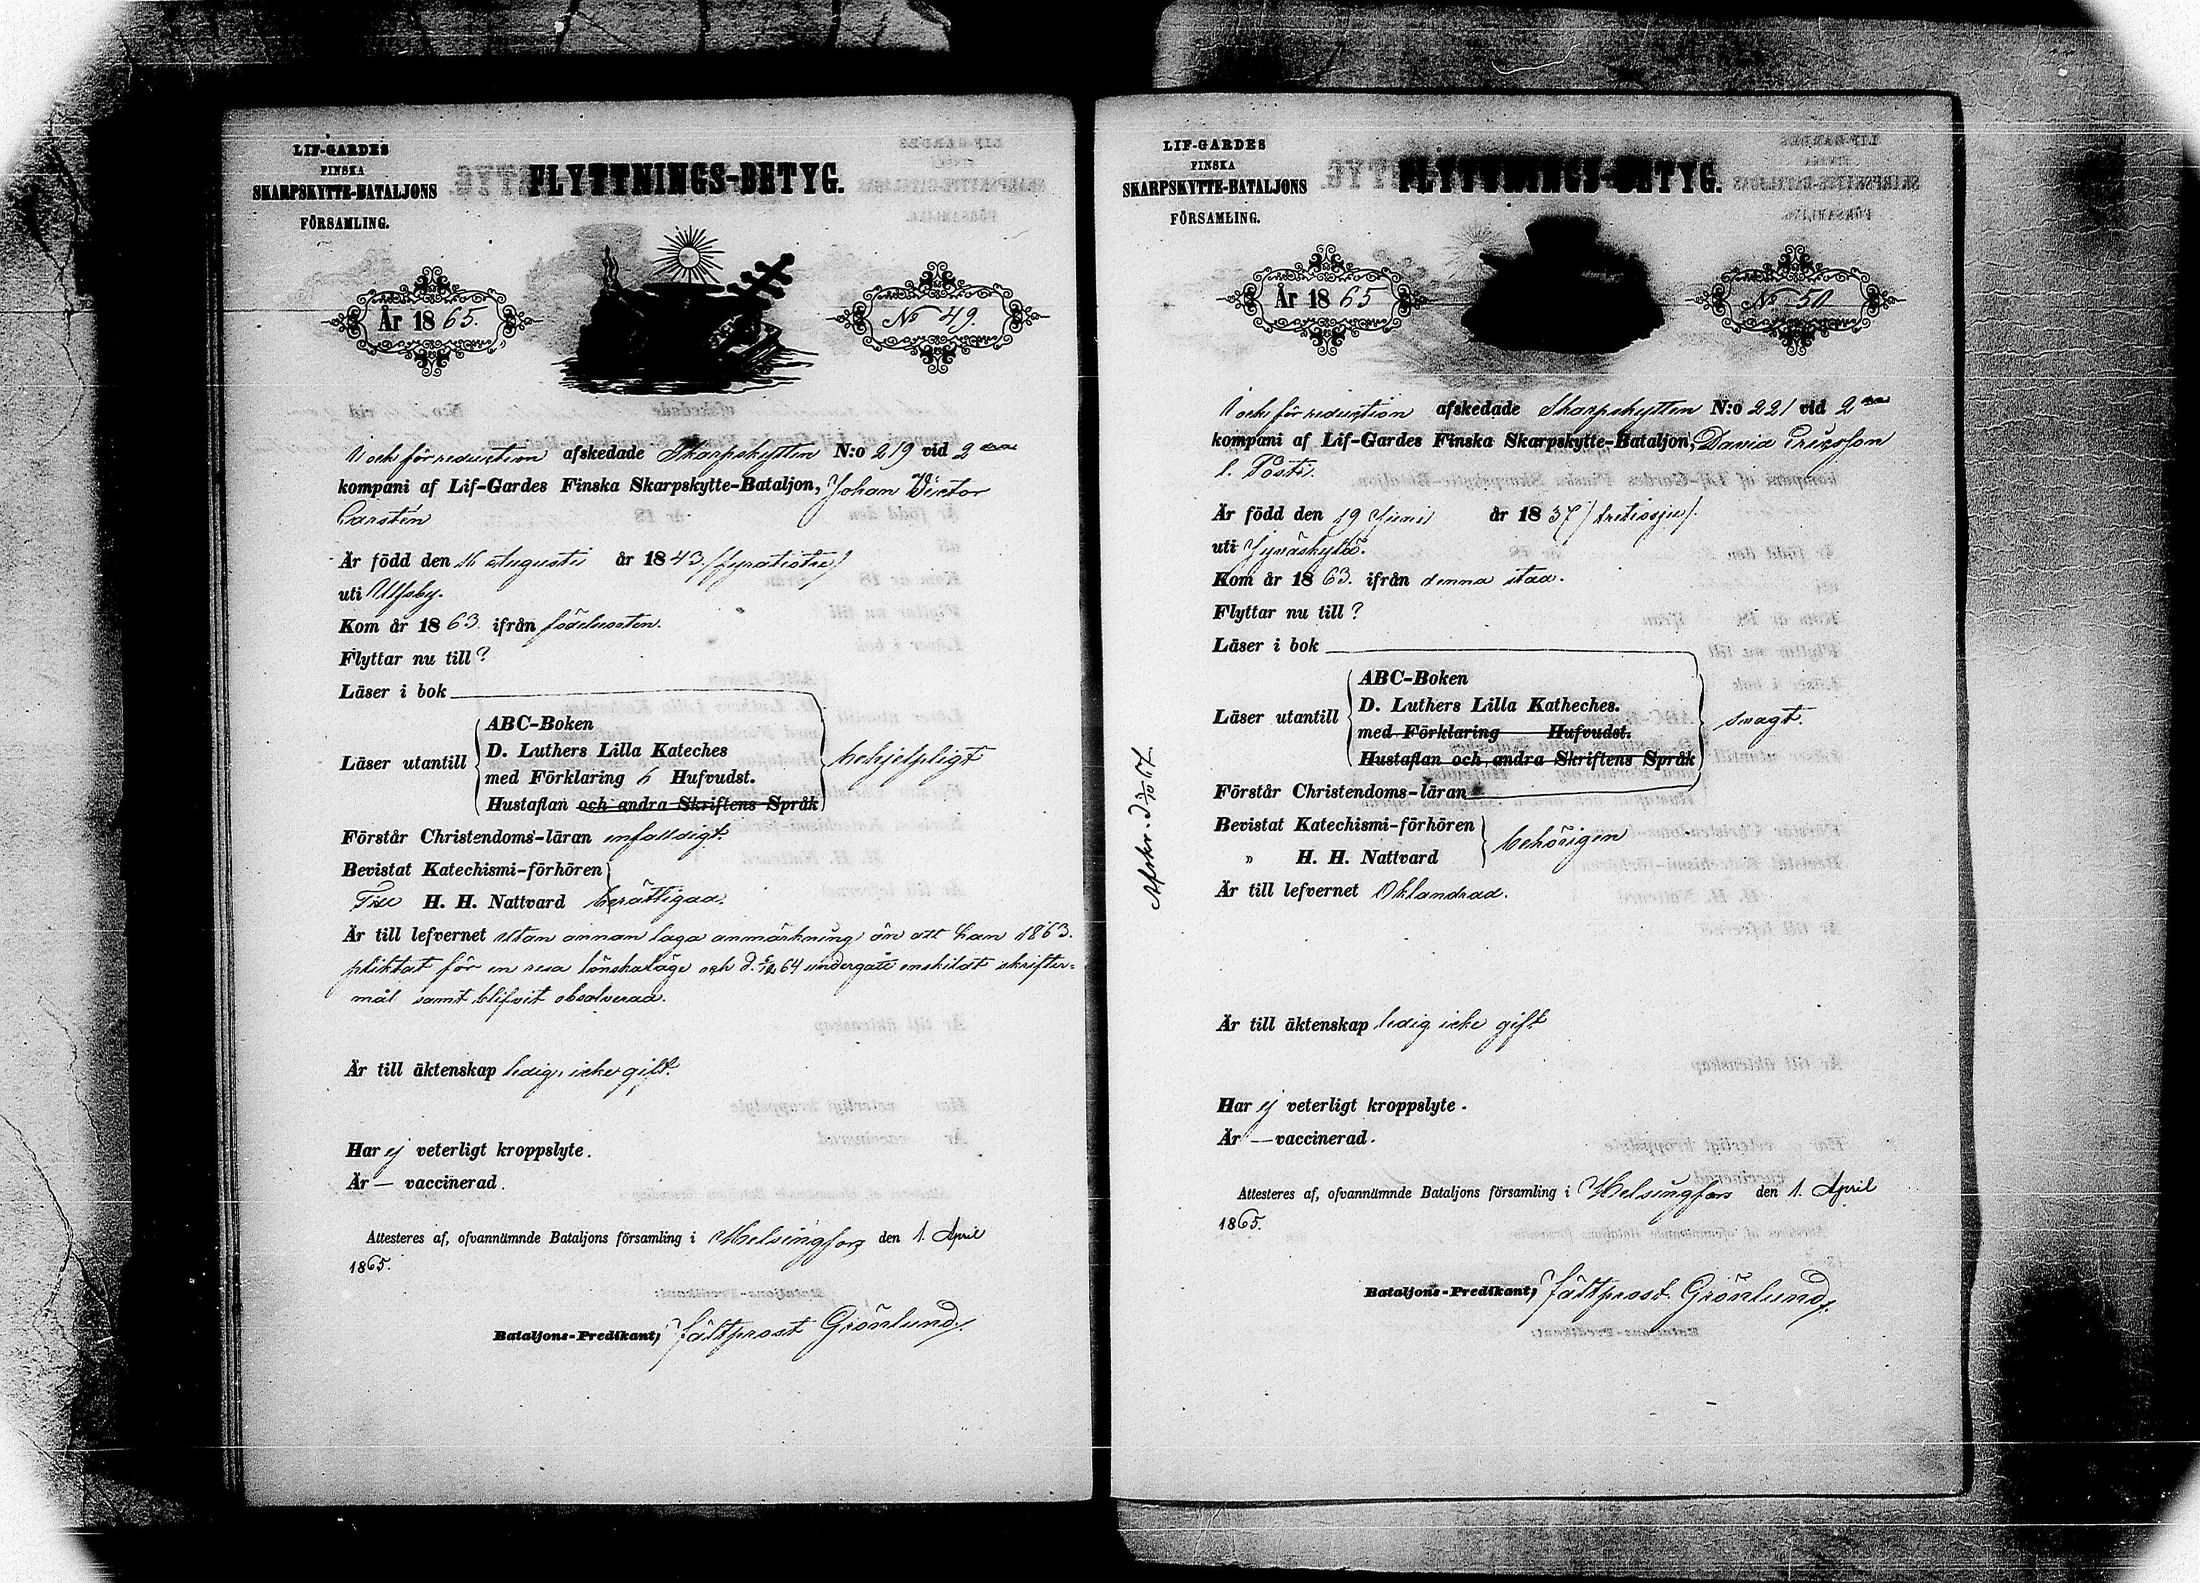 LIF-GARDES
FINSKA
SKARPSKYTTE-BATALJONS
FÖRSAMLING.
FLYTTNINGS-BETYG.
År 1865.
No 49.
och för reduction afskedade Skarpskytten N:o 219 vid 2dra
kompani af Lif-Gardes Finska Skarpskytte-Bataljon, Johan Victor
Carstén
Är född den 16 Augusti år 1843 /fyratiotre/
uti Ulfsby.
Kom år 1863. ifrån födelseorten.
Flyttar nu till?
Läser i bok
Läser utantill
ABC-Boken
D. Luthers Lilla Kateches
med Förklaring 6 Hufvudst.
Hustaflan och andra Skriftens Språk
behjelpligt
Förstår Christendoms-läran enfalldigt
Bevistat Katechismi-förhören
Till H. H. Nattvard berättigad.
Är till lefvernet utan annan laga anmärkning än att han 1863.
pliktat för en resa lönskaläge och d. 64 undergått enskildt skrifter-
mål samt blifvit absolverad.
Är till äktenskap ledig, icke gift.
Har ej veterligt kroppslyte.
Är — vaccinerad.
Attesteras af, ofvannämnde Bataljons församling i Helsingfors den 1. April
1865.
Bataljons-Predikant, Fältprost Grönlund.
LIF-GARDES
FINSKA
SKARPSKYTTE-BATALJONS
FÖRSAMLING.
FLYTTNINGS-BETYG.
År 1865
No 50.
och för reduction afskedade Skarpskytten N:o 221 vid 2dra
kompani af Lif-Gardes Finska Skarpskytte-Bataljon, David Ericsson
l. Posti.
Är född den 19 Juni år 1837 /trettiosju/.
uti Jyväskylä.
Kom år 1863. ifrån denna stad.
Flyttar nu till?
Läser i bok
Läser utantill
ABC-Boken
D. Luthers Lilla Katheches.
med Förklaring Hufvudst.
Hustaflan och andra Skriftens Språk
svagt.
Förstår Christendoms-läran
Bevistat Katechismi-förhören
» H. H. Nattvard
behörigen
Är till lefvernet Oklandrad.
Är till äktenskap ledig icke gift
Har ej veterligt kroppslyte.
Är — vaccinerad.
Attesteres af, ofvannämnde Bataljons församling i Helsingfors den 1. April
1865.
Bataljons-Predikant, Fältprost. Grönlund.